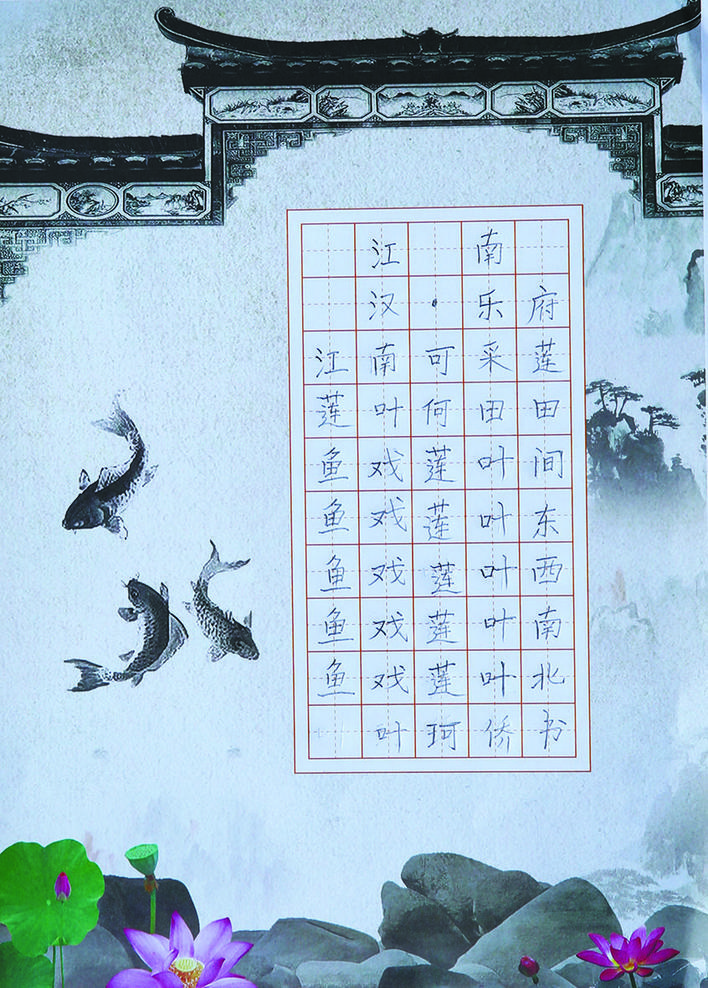 江南
汉·乐府
江南可采莲
莲叶何田田
鱼戏莲叶间
鱼戏莲叶东
鱼戏莲叶西
鱼戏莲叶南
鱼戏莲叶北
叶珂侨书